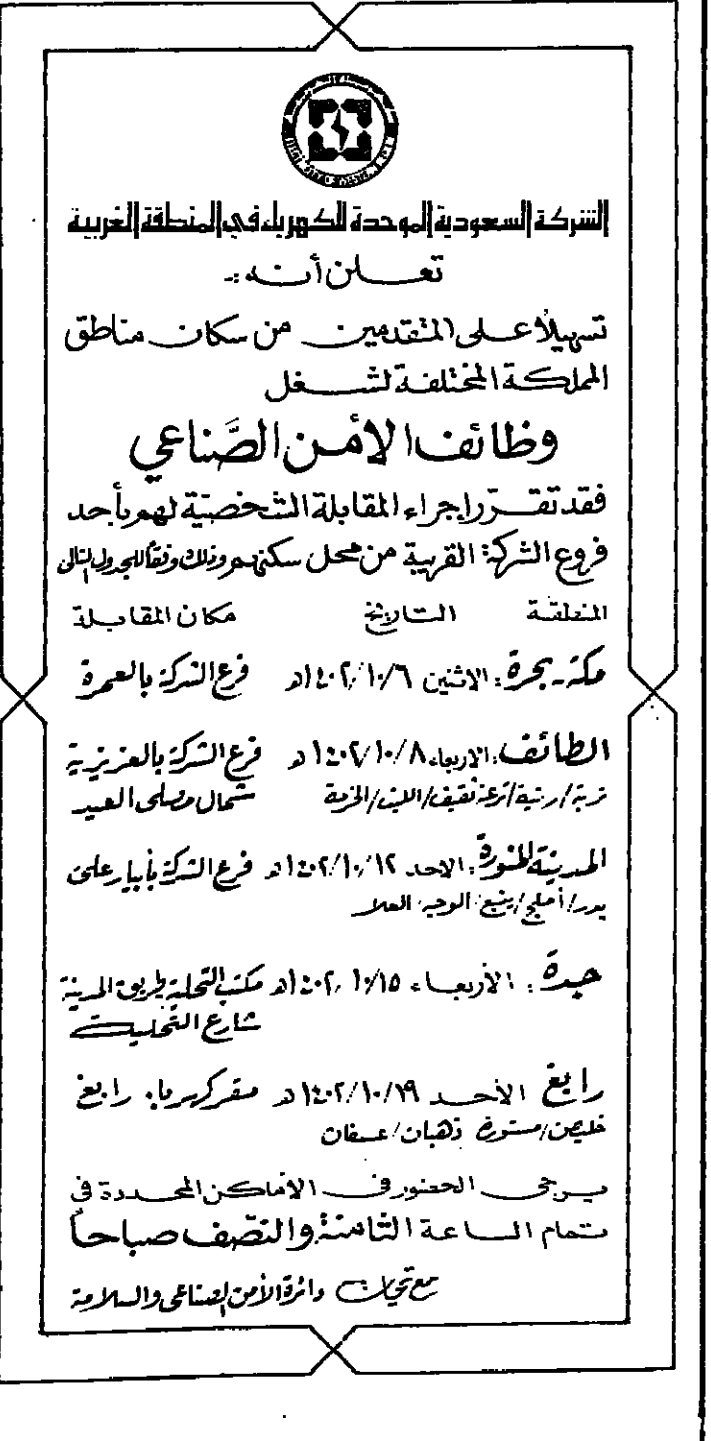 الشركة السعودية الموحدة للكهرباء في المنطقة الغربية
تعلن أنه :-
تسهيلاً على المتقدمين من سكان مناطق
المملكة المختلفة لشغل
وظائف الأمن الصَّناعي
فقد تقرّر إجراء المقابلة الشخصيّة لهم بأحد
فروع الشركة القريبة من محل سكنهم وذلك وفقاً للجدول التالى
المنطقة التاريخ مكان المقابلة
مكة - بحرة : الاثنين ١٤٠٢/١٠/٦هـ فرع الشركة بالعمرة
الطائف : الاربعاء ١٤٠٢/١٠/٨هـ فرع الشركة بالعزيزية
تربة / رنية / ترعة ثقيف / الليث / الخرمة شمال مصلى العيد
المدينة المنورة : الاحد ١٤٠٢/١٠/١٢هـ فرع الشركة بأبيار على
بدر / أملج / ينبع / الوجه / العلا
جدة : الأربعاء ١٤٠٢/١٠/١٥هـ مكتب التحلية طريق المدينة
شارع التحلية
رابغ الأحد ١٤٠٢/١٠/١٩هـ مقر كهرباء رابغ
خليص / مستورة ذهبان / عسفان
يرجى الحضور في الأماكن المحددة في
تمام الساعة الثامنة والنصّف صباحاً
مع تحيات دائرة الأمن الصناعى والسلامة